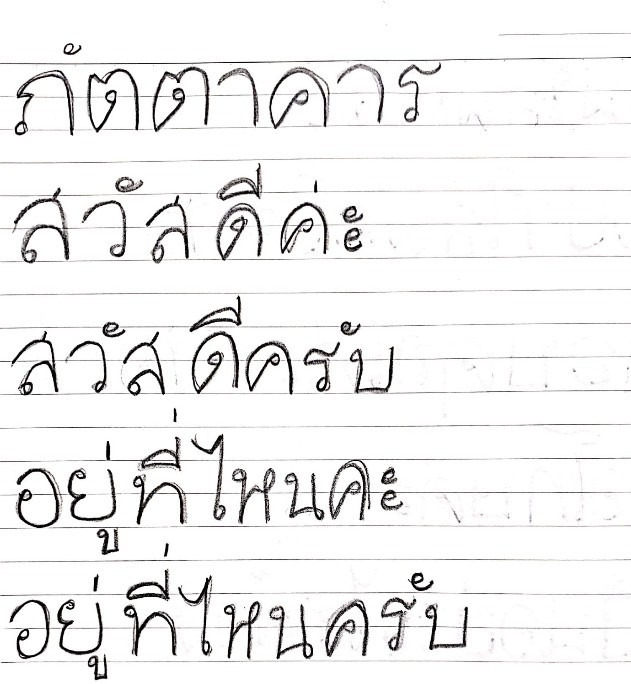 ภัตตาคาร
สวัสดีค่ะ
สวัสดีครับ
อยู่ที่ไหนคะ
อยู่ที่ไหนครับ